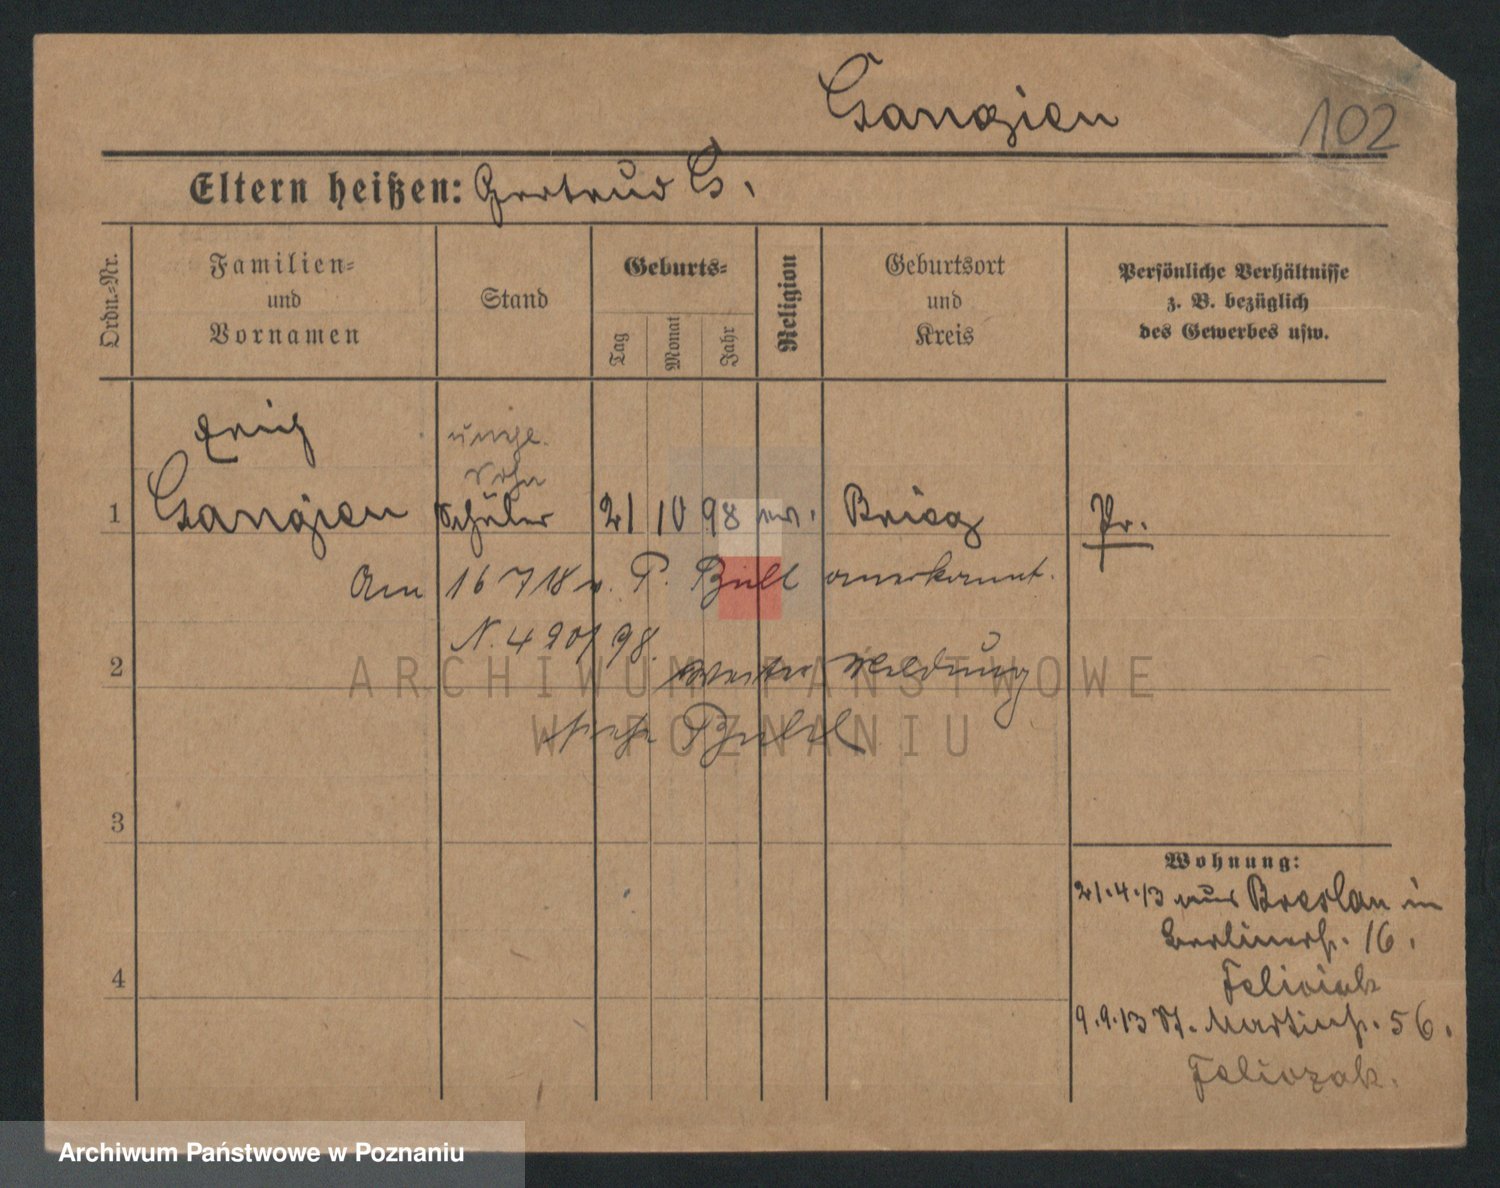 102
Eltern heißen: Gertrud
Ordn.-Nr.
Familien-
und
Vornamen
Stand
Geburts-
Tag
Monat
Jahr
Religion
Geburtsort
und
Kreis
Persönliche Verhältnisse
z. B. bezüglich
des Gewerbes usw.
Erich
unehe.
Sohn
1 Schüler 21 10 98 ev. Brieg Pr.
Am 16 7 18 v. P. anerkannt.
N. 490/98.
2 Weitere Meldung
siehe
ARCHIWUM PAŃSTWOWE
W POZNANIU
3
Wohnung:
21.4.13 aus Breslau in
Berlinerstr. 16.
4
9.9.13 St. Martinstr. 56.
Feliczak.
Archiwum Państwowe w Poznaniu